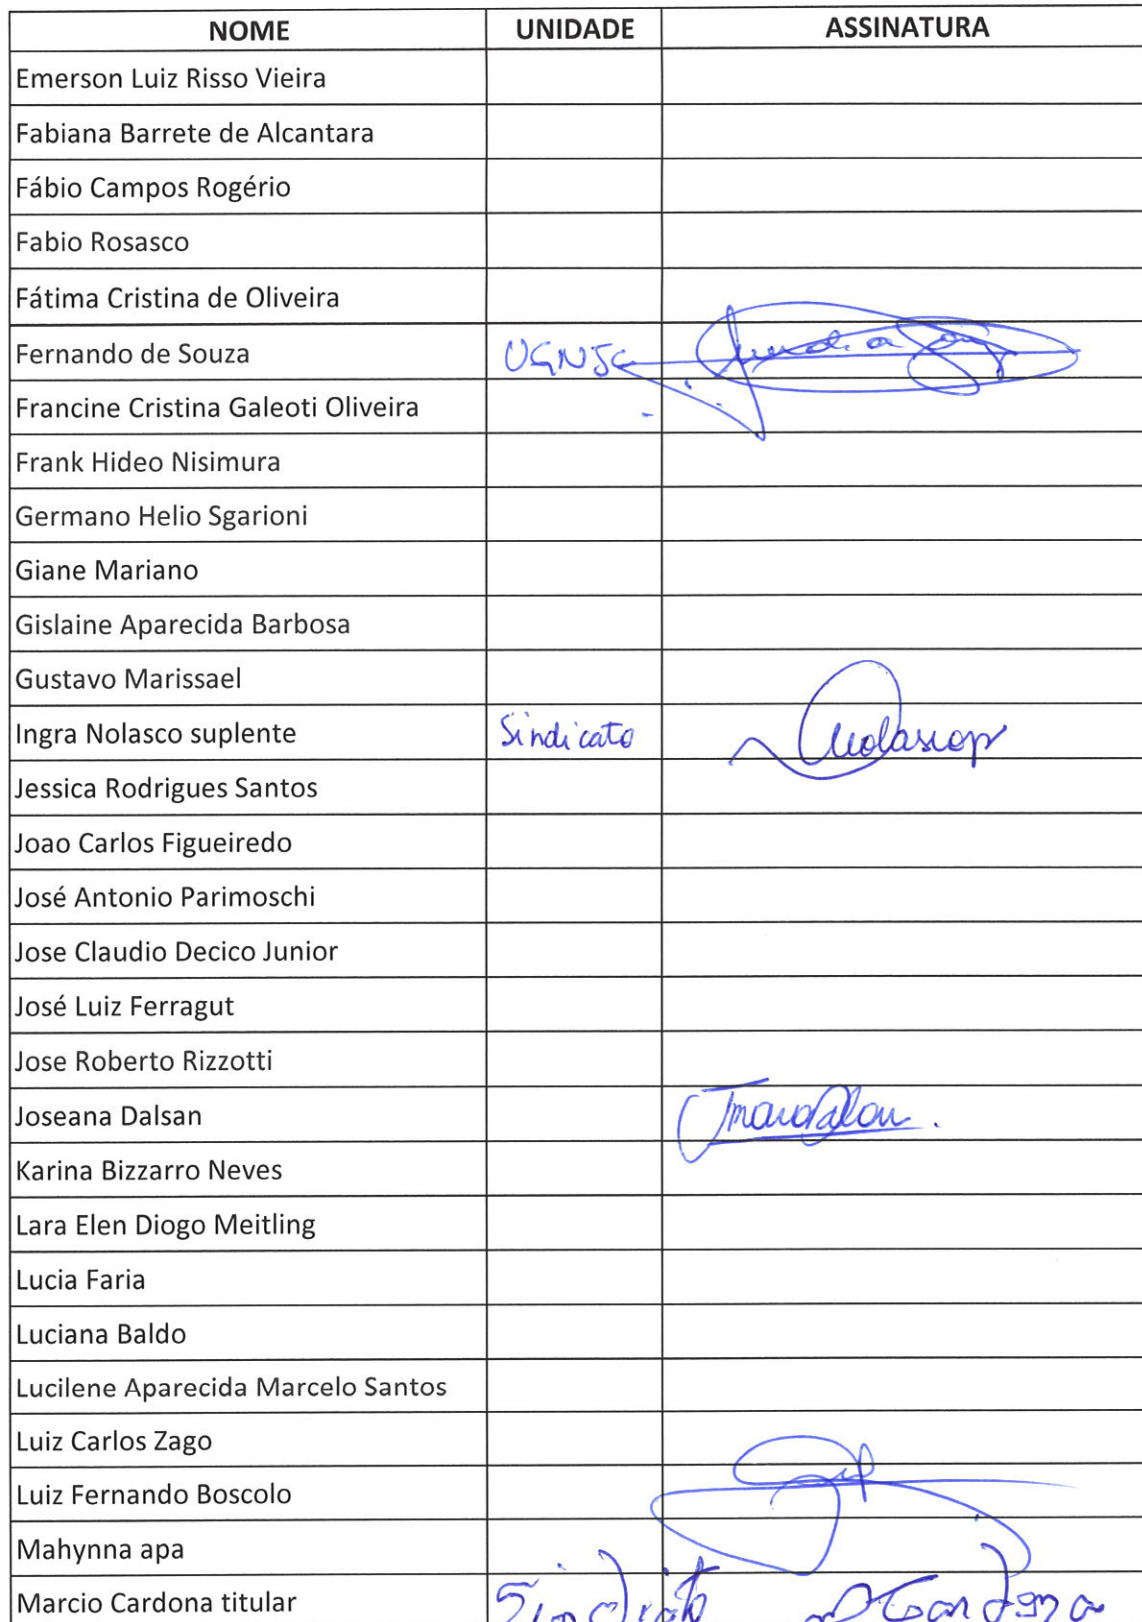 NOME UNIDADE ASSINATURA
Emerson Luiz Risso Vieira
Fabiana Barrete de Alcantara
Fábio Campos Rogério
Fabio Rosasco
Fátima Cristina de Oliveira
Fernando de Souza
Francine Cristina Galeoti Oliveira
Frank Hideo Nisimura
Germano Helio Sgarioni
Giane Mariano
Gislaine Aparecida Barbosa
Gustavo Marissael
Ingra Nolasco suplente Sindicato
Jessica Rodrigues Santos
Joao Carlos Figueiredo
José Antonio Parimoschi
Jose Claudio Decico Junior
José Luiz Ferragut
Jose Roberto Rizzotti
Joseana Dalsan
Karina Bizzarro Neves
Lara Elen Diogo Meitling
Lucia Faria
Luciana Baldo
Lucilene Aparecida Marcelo Santos
Luiz Carlos Zago
Luiz Fernando Boscolo
Mahynna apa
Marcio Cardona titular Sindicato